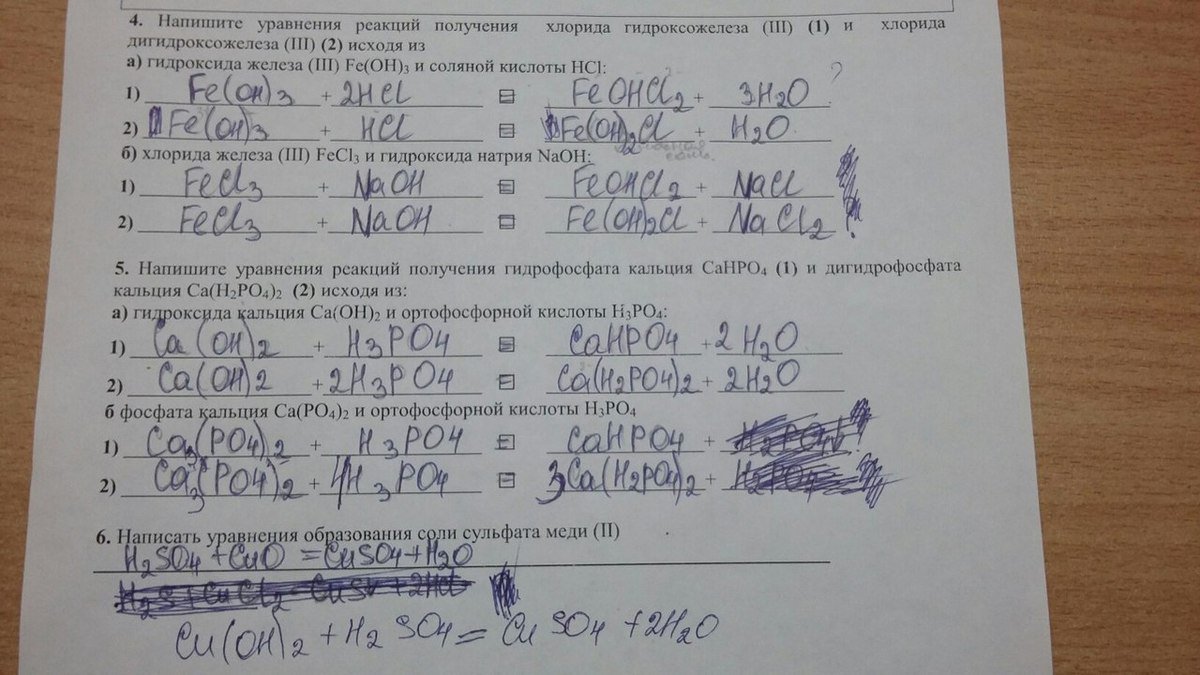 4. Напишите уравнения реакций получения хлорида гидроксожелеза (III) (1) и хлорида
дигидроксожелеза (III) (2) исходя из
а) гидроксида железа (III) Fe(OH)₃ и соляной кислоты HCl:
1) Fe(OH)₃ + 2HCl = FeOHCl₂ + 3H₂O ?
2) Fe(OH)₃ + HCl = Fe(OH)₂Cl + H₂O
б) хлорида железа (III) FeCl₃ и гидроксида натрия NaOH:
1) FeCl₃ + NaOH = FeOHCl₂ + NaCl
2) FeCl₃ + NaOH = Fe(OH)₂Cl + NaCl₂
5. Напишите уравнения реакций получения гидрофосфата кальция CaHPO₄ (1) и дигидрофосфата
кальция Ca(H₂PO₄)₂ (2) исходя из:
а) гидроксида кальция Ca(OH)₂ и ортофосфорной кислоты H₃PO₄:
1) Ca(OH)2 + H3PO4 = CaHPO4 + 2H2O
2) Ca(OH)2 + 2H3PO4 = Ca(H2PO4)2 + 2H2O
б фосфата кальция Ca(PO₄)₂ и ортофосфорной кислоты H₃PO₄
1) Ca₃(PO4)2 + H3PO4 = CaHPO4 +
2) Ca₃(PO4)2 + 4H3PO4 = 3Ca(H2PO4)2 +
6. Написать уравнения образования соли сульфата меди (II)
H₂SO4 + CuO = CuSO4 + H2O
Cu(OH)₂ + H₂SO4 = CuSO4 + 2H2O